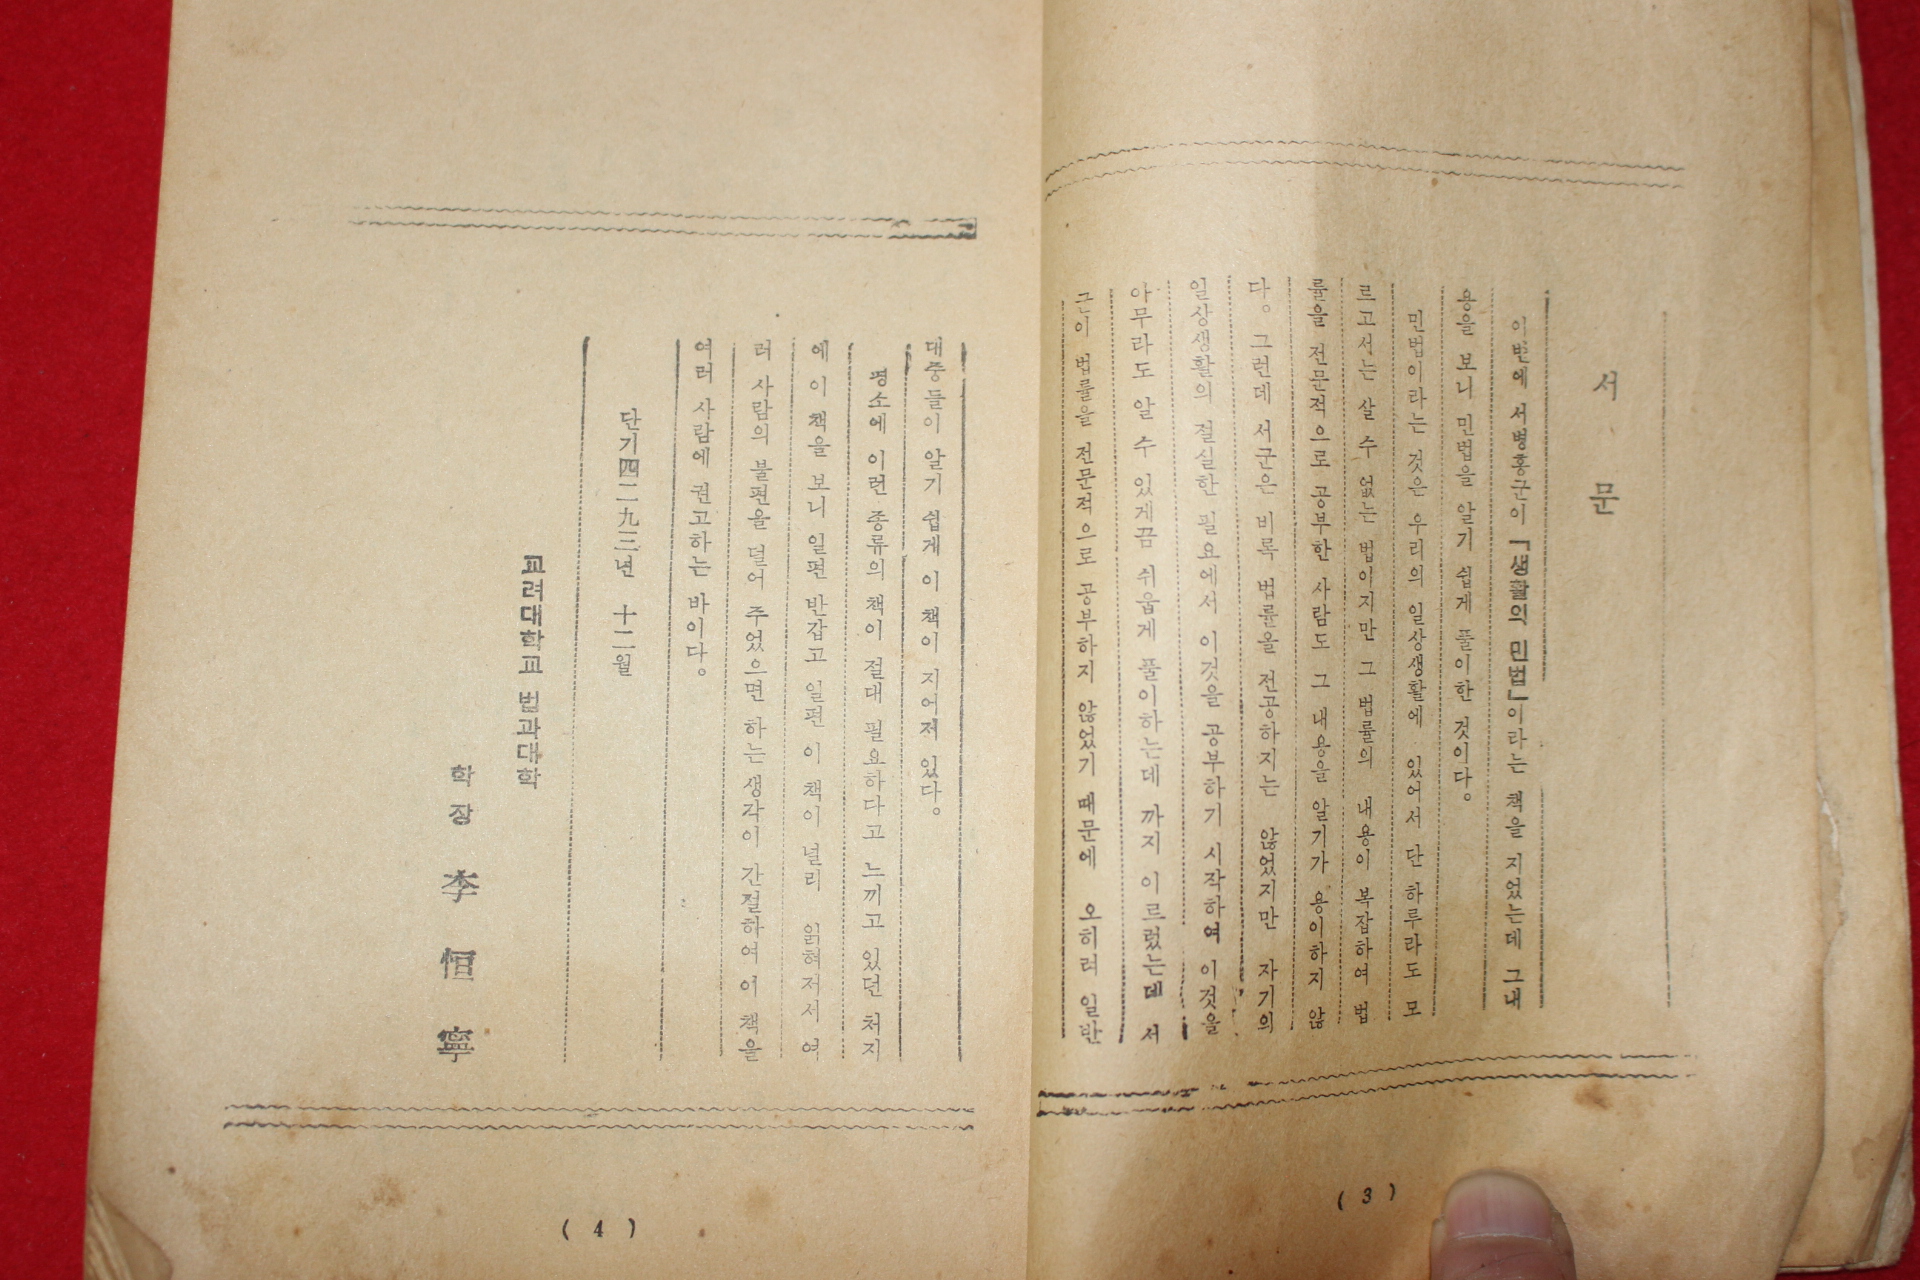 서 문
이번에 서병홍군이 「생활의 민법」이라는 책을 지었는데 그내
용을 보니 민법을 알기 쉽게 풀이한 것이다。
민법이라는 것은 우리의 일상생활에 있어서 단 하루라도 모
르고서는 살 수 없는 법이지만 그 법률의 내용이 복잡하여 법
률을 전문적으로 공부한 사람도 그 내용을 알기가 용이하지 않
다。 그런데 서군은 비록 법률을 전공하지는 않었지만 자기의
일상생활의 절실한 필요에서 이것을 공부하기 시작하여 이것을
아무라도 알 수 있게끔 쉬웁게 풀이하는데 까지 이르렀는데 서
군이 법률을 전문적으로 공부하지 않었기 때문에 오히려 일반
( 3 )
대중들이 알기 쉽게 이 책이 지어져 있다。
평소에 이런 종류의 책이 절대 필요하다고 느끼고 있던 처지
에 이 책을 보니 일편 반갑고 일편 이 책이 널리 읽혀저서 여
러 사람의 불편을 덜어 주었으면 하는 생각이 간절하여 이 책을
여러 사람에 권고하는 바이다。
단기四二九三년 十二월
고려대학교 법과대학
학장 李恒寧
( 4 )